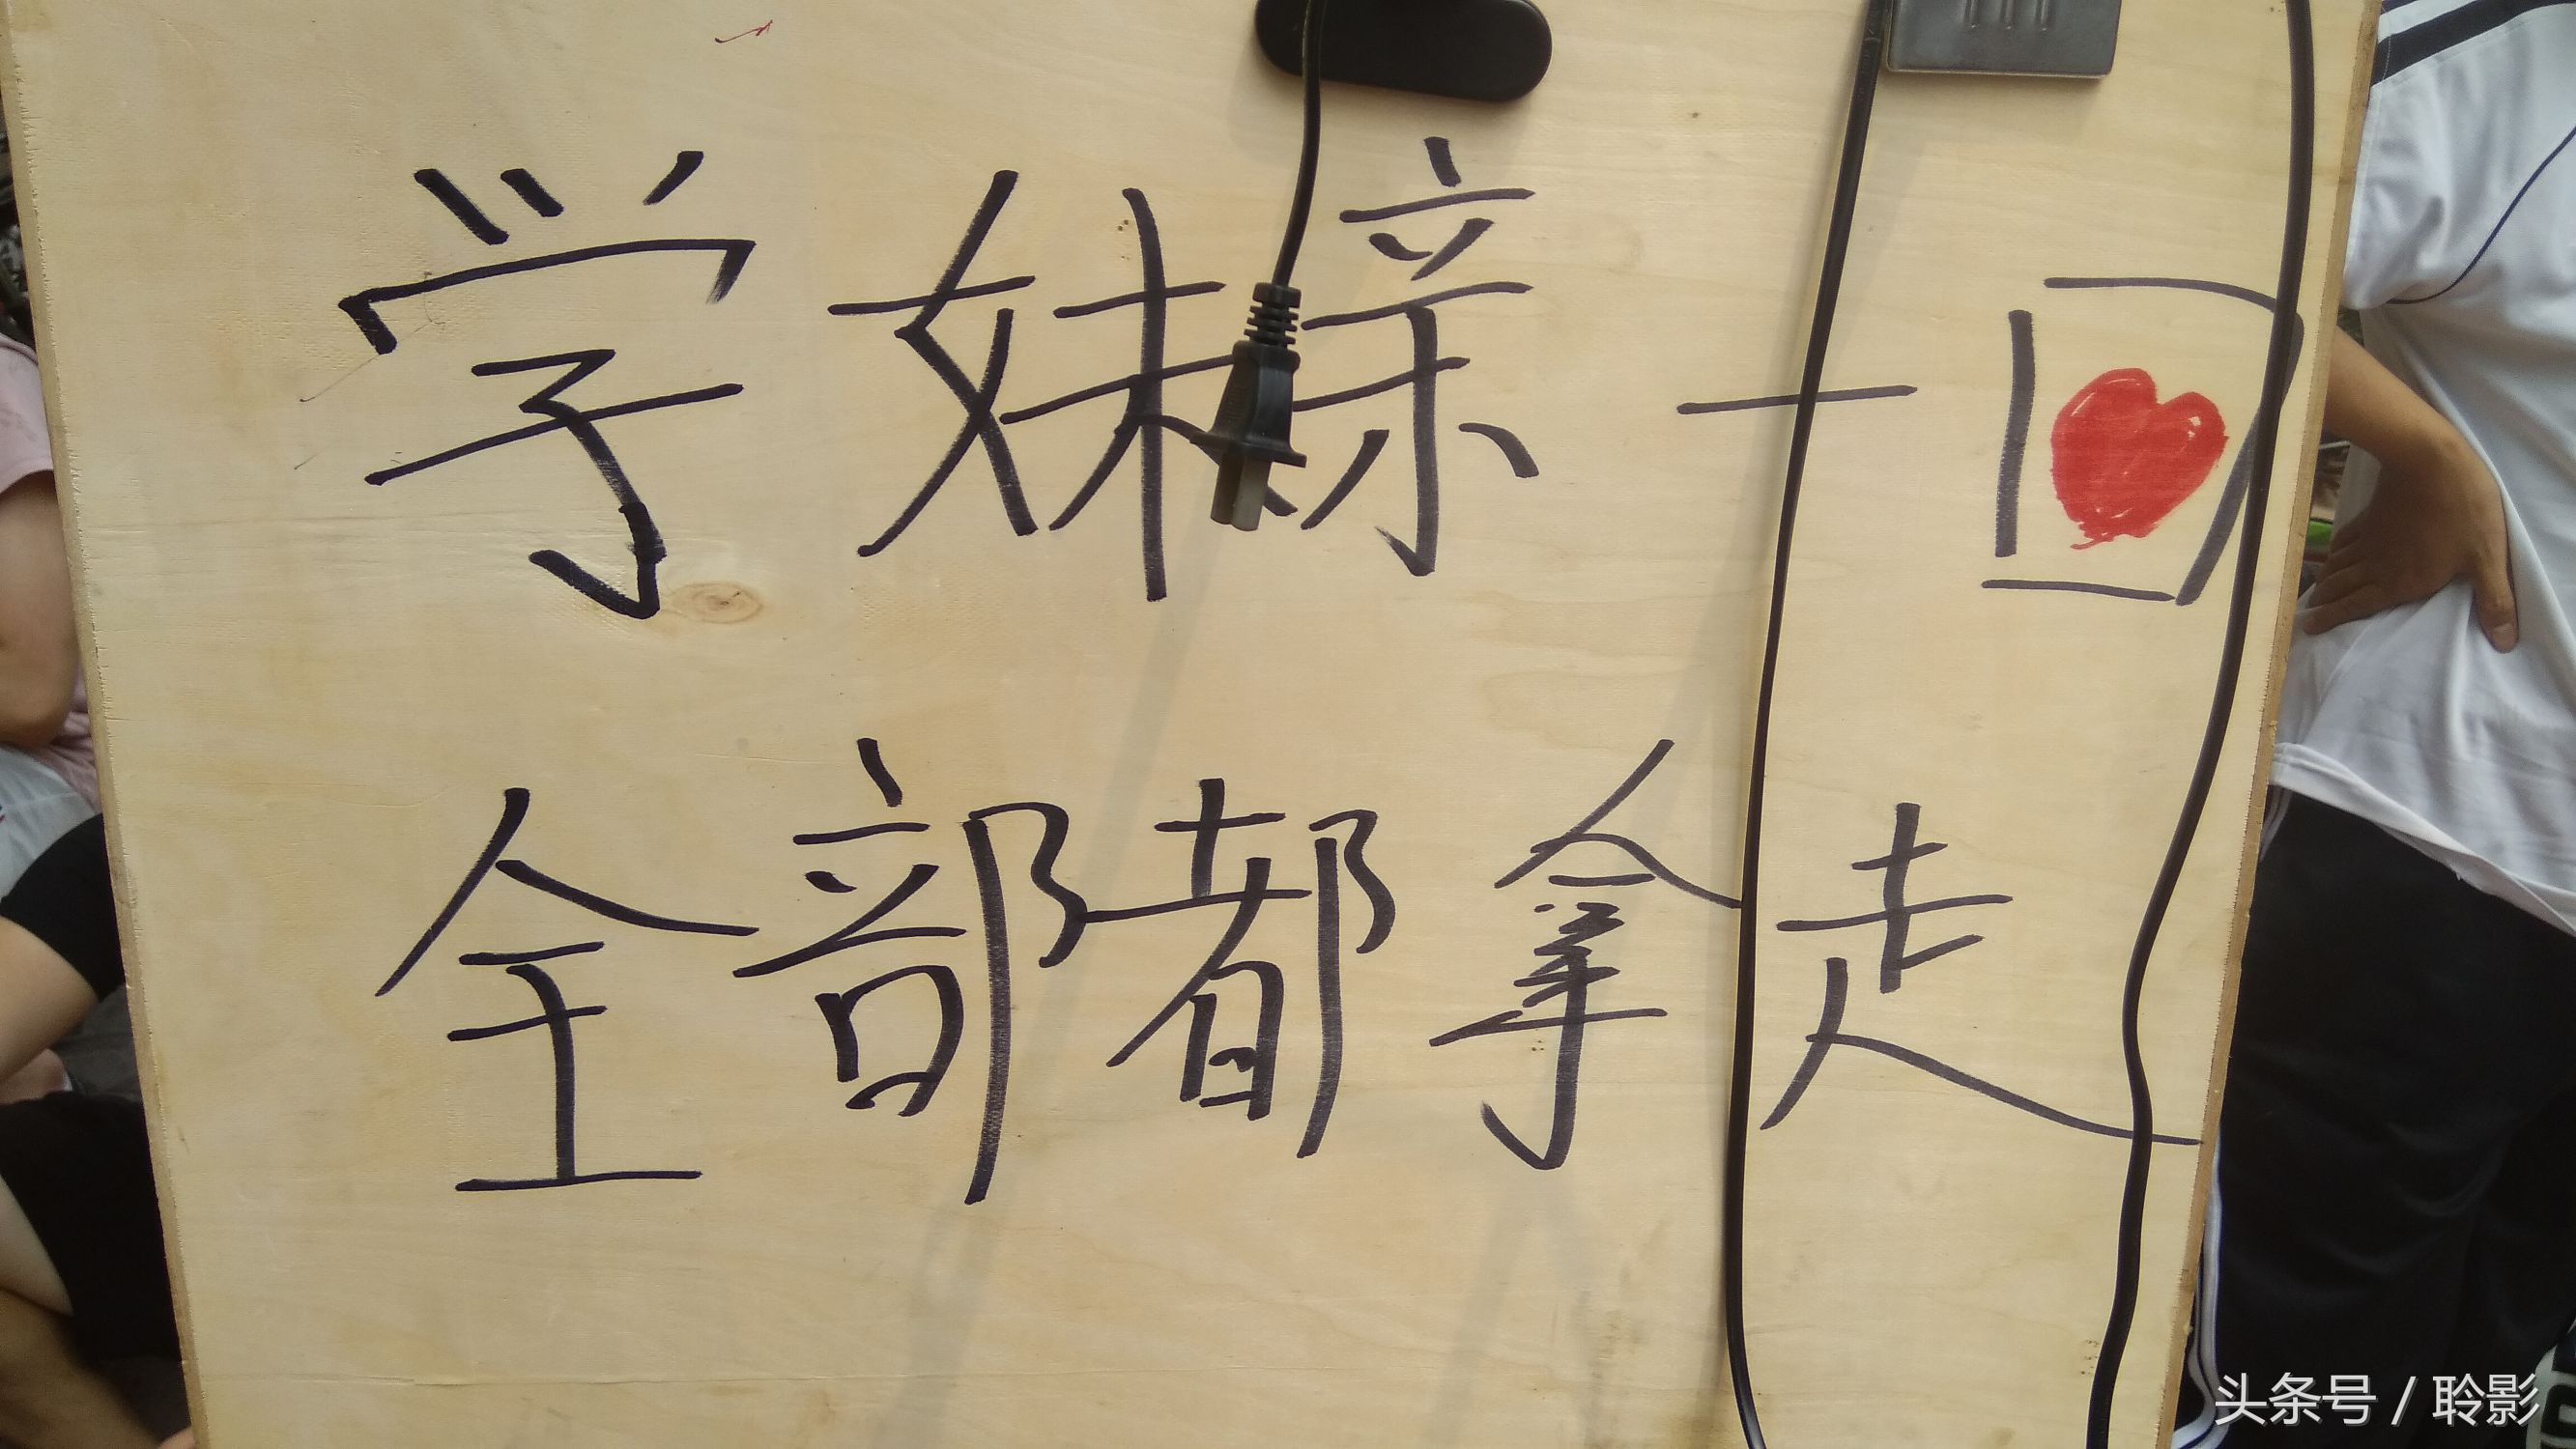 学妹亲一回
全部都拿走
头条号 / 聆影